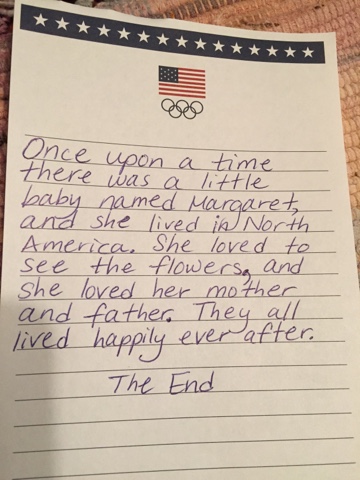 Once upon a time
there was a little
baby named Margaret,
and she lived in North
America. She loved to
see the flowers, and
she loved her mother
and father. They all
lived happily ever after.
The End